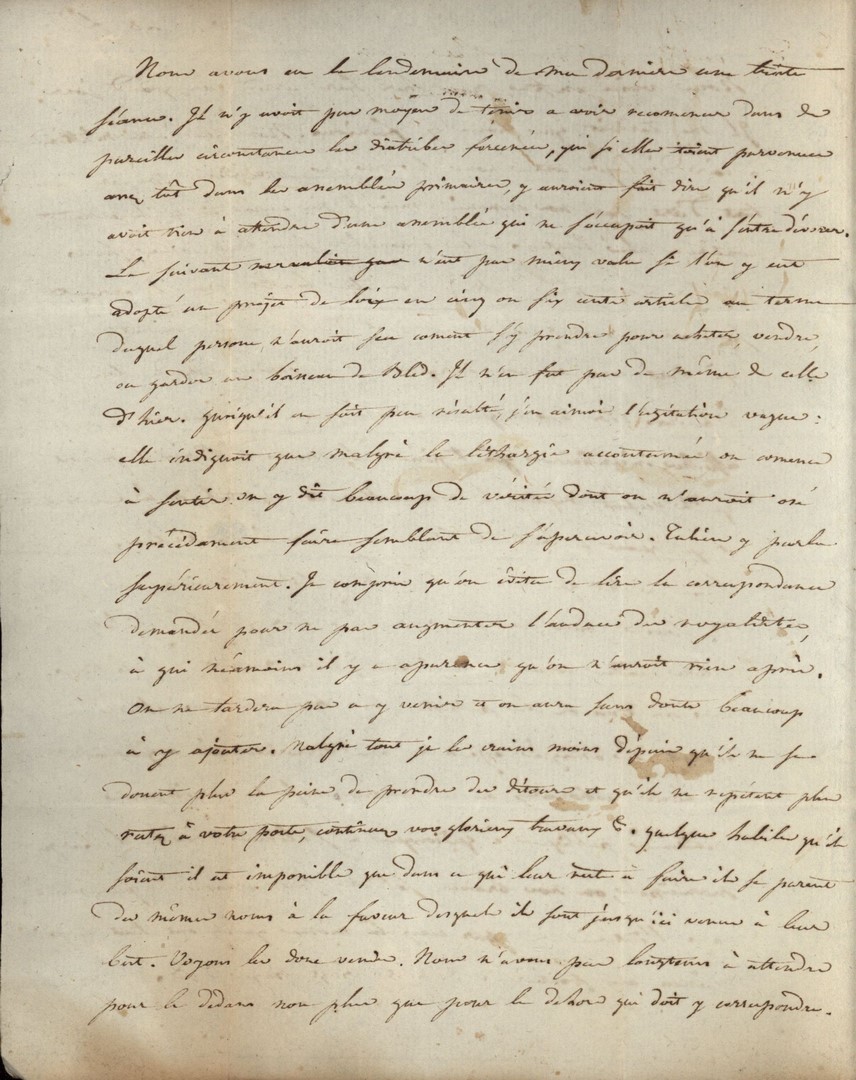 Nous avons eu le lendemain de ma dernière une triste
séance. Il n'y avoit pas moyen de tenir a voir recomencer dans de
pareilles circonstances les diatribes forcenées, qui si elle toient parvenues
assez tôt dans les assemblées primaires, y auroient fait dire qu'il n'y
avoit rien à attendre d'une assemblée qui ne s'occupoit qu'à s'entredévorer.
La suivante n'eut pas mieux valu si l'on y eut
adopté un projet de loix en cinq ou six cents articles au terme
duquel persone n'auroit seu coment s'y prendre pour acheter, vendre,
ou garder un boisseau de Bled. Il n'en fut pas de même de celle
d'hier. quoiqu'il en soit peu résulté, j'en aimois l'agitation vague :
elle indiquoit que malgré la léthargie accoutumée on comence
à sentir. on y dit beaucoup de vérités dont on n'auroit osé
précédament faire semblant de s'apercevoir. y parla
supérieurement. Je conçois qu'on évita de lire la correspondance
demandée pour ne pas augmenter l'audace des royalistes,
à qui néamoins il y a aparence qu'on n'auroit rien apris.
On ne tardera pas a y venir et on aura sans doute beaucoup
à y ajouter. Malgré tout je les crains moins depuis qu'ils ne se
donent plus la peine de prendre des détours et qu'ils ne répètent plus
restez à votre poste, continuez vos glorieux travaux &. quelque habiles qu'ils
soient il est impossible que dans ce qui leur reste à faire ils se parent
du même nom à la faveur desquels ils sont jusqu'ici venus à leur
but. Voyons les donc venir. Nous n'avons pas longtems à attendre
pour le dedans non plus que pour le dehors qui doit y correspondre.